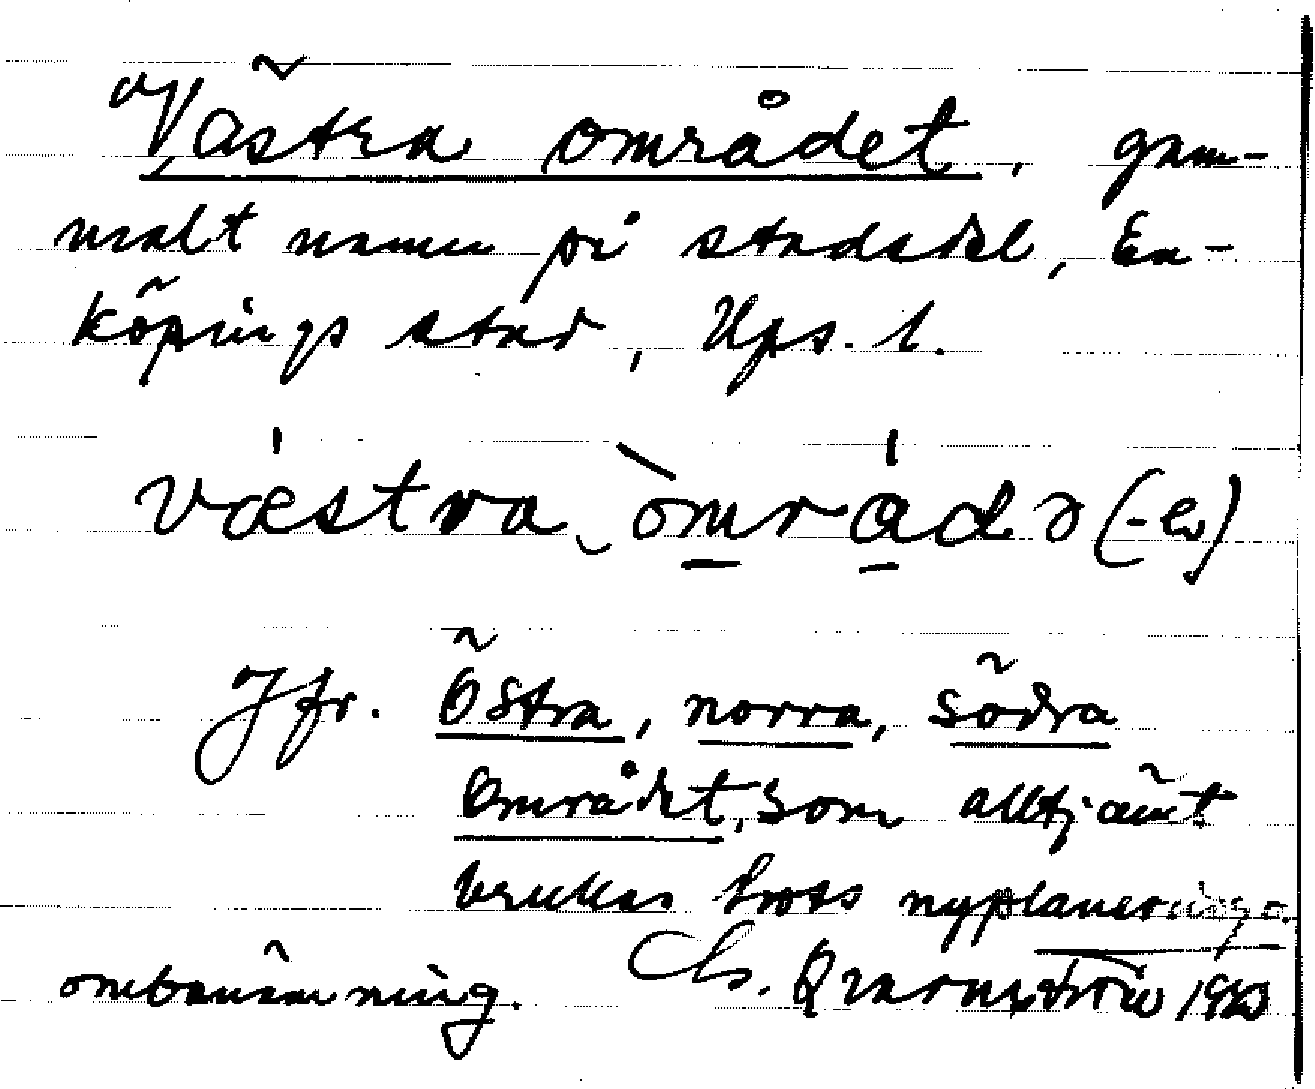 Västra området, gam-
malt namn på stadsdel, En-
köpings stad, Ups. l.
væstra områdə (-et)
Jfr. Östra, norra, södra
området, som alltjämt
brukas trots nyplanering o.
ombenämning. Ch. Qvarnström